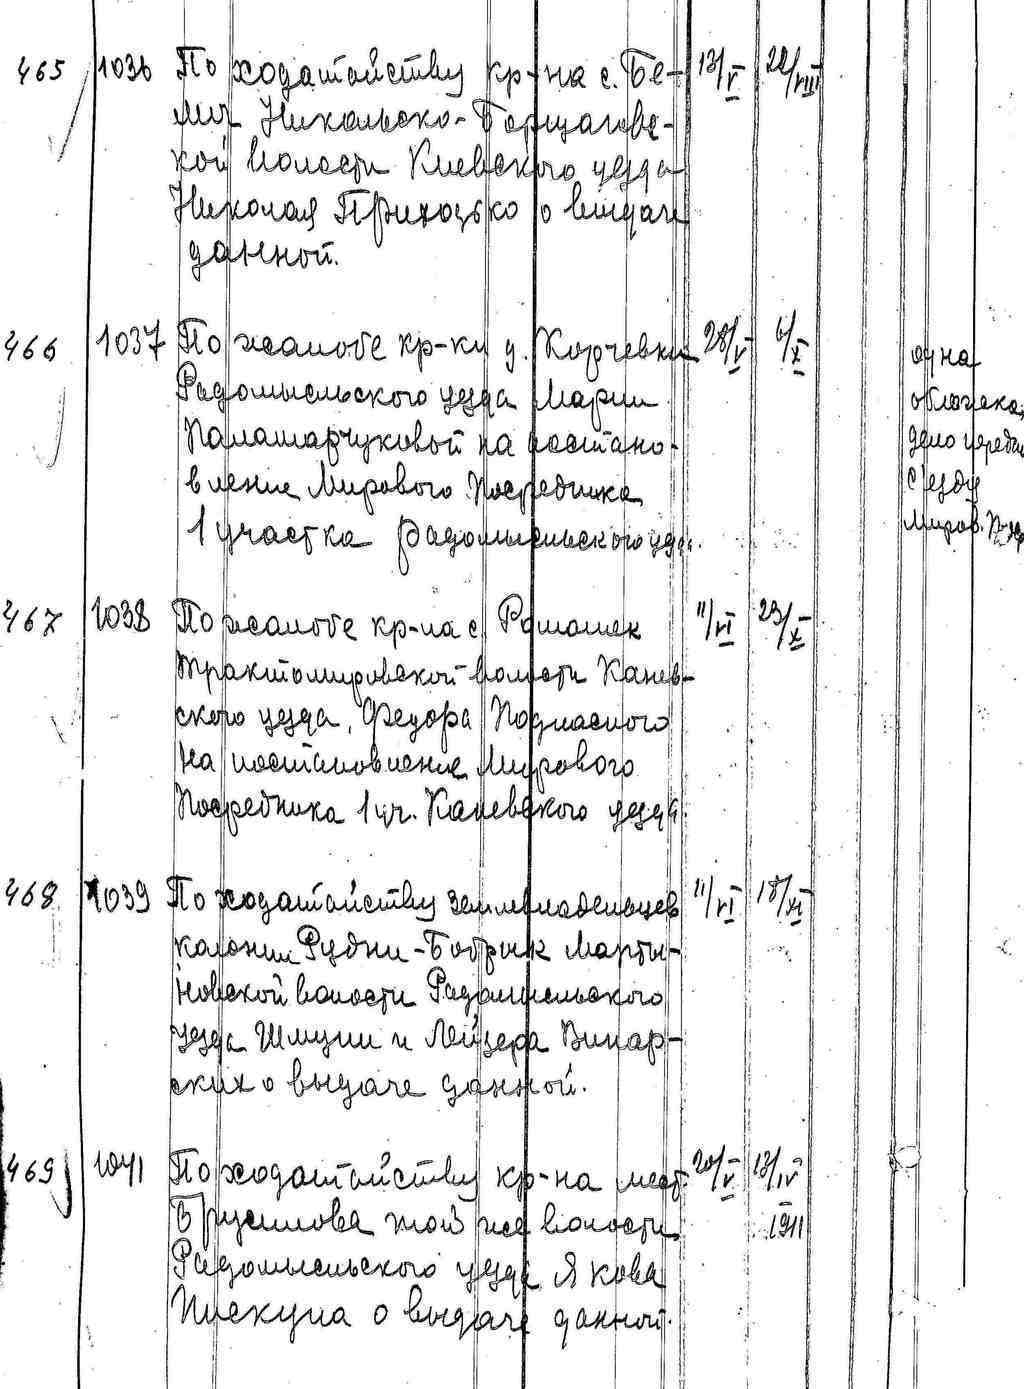 465 1036 По ходатайству кр-на с. Бе- 13/V 22/VIII
лич Никольско-Борщагов-
ской волости Киевского уезда
Николая Приходько о выдаче
данной.
466 1037 По жалобе кр-ки д. Корчевки 28/V 6/X
Радомысльского уезда Марии
Паламарчуковой на постано-
вление Мирового Посредника
1 участка Радомысльского уезда.
одна
обложка,
дело передан
С'езду
Миров. П-ср
467 1038 По жалобе кр-на с. Ромашек 11/VI 23/X
Трактомировской волости Канев-
ского уезда, Федора Подласного
на постановление Мирового
Посредника 1 уч. Каневского уезда.
468 1039 По ходатайству землевладельцев 11/VI 18/XI
колонии Рудни-Бобрык Марты-
новской волости Радомысльского
уезда Шмуни и Лейзера Винар-
ских о выдаче данной.
469 1041 По ходатайству кр-на мест. 20/V 13/IV
Брусилова той же волости 1911
Радомысльского уезда Якова
Пискуна о выдаче данной.